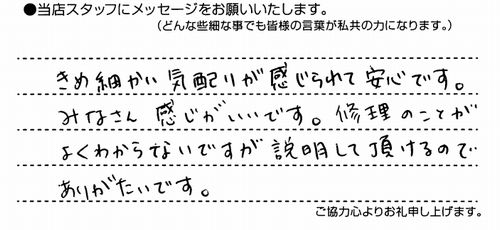 ●当店スタッフにメッセージをお願いいたします。
（どんな些細な事でも皆様の言葉が私共の力になります。）
きめ細かい気配りが感じられて安心です。
みなさん感じがいいです。修理のことが
よくわからないですが説明して頂けるので
ありがたいです。
ご協力心よりお礼申し上げます。